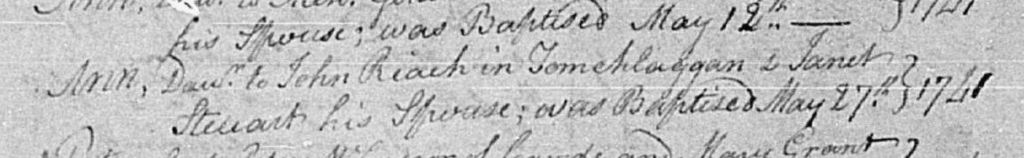 his Spouse; was Baptised May 12th — } 1741
Ann, Dawr. to John Riach in Tomchlaggan & Janet
Steuart his Spouse; was Baptised May 27th } 1741
and Mary Grant